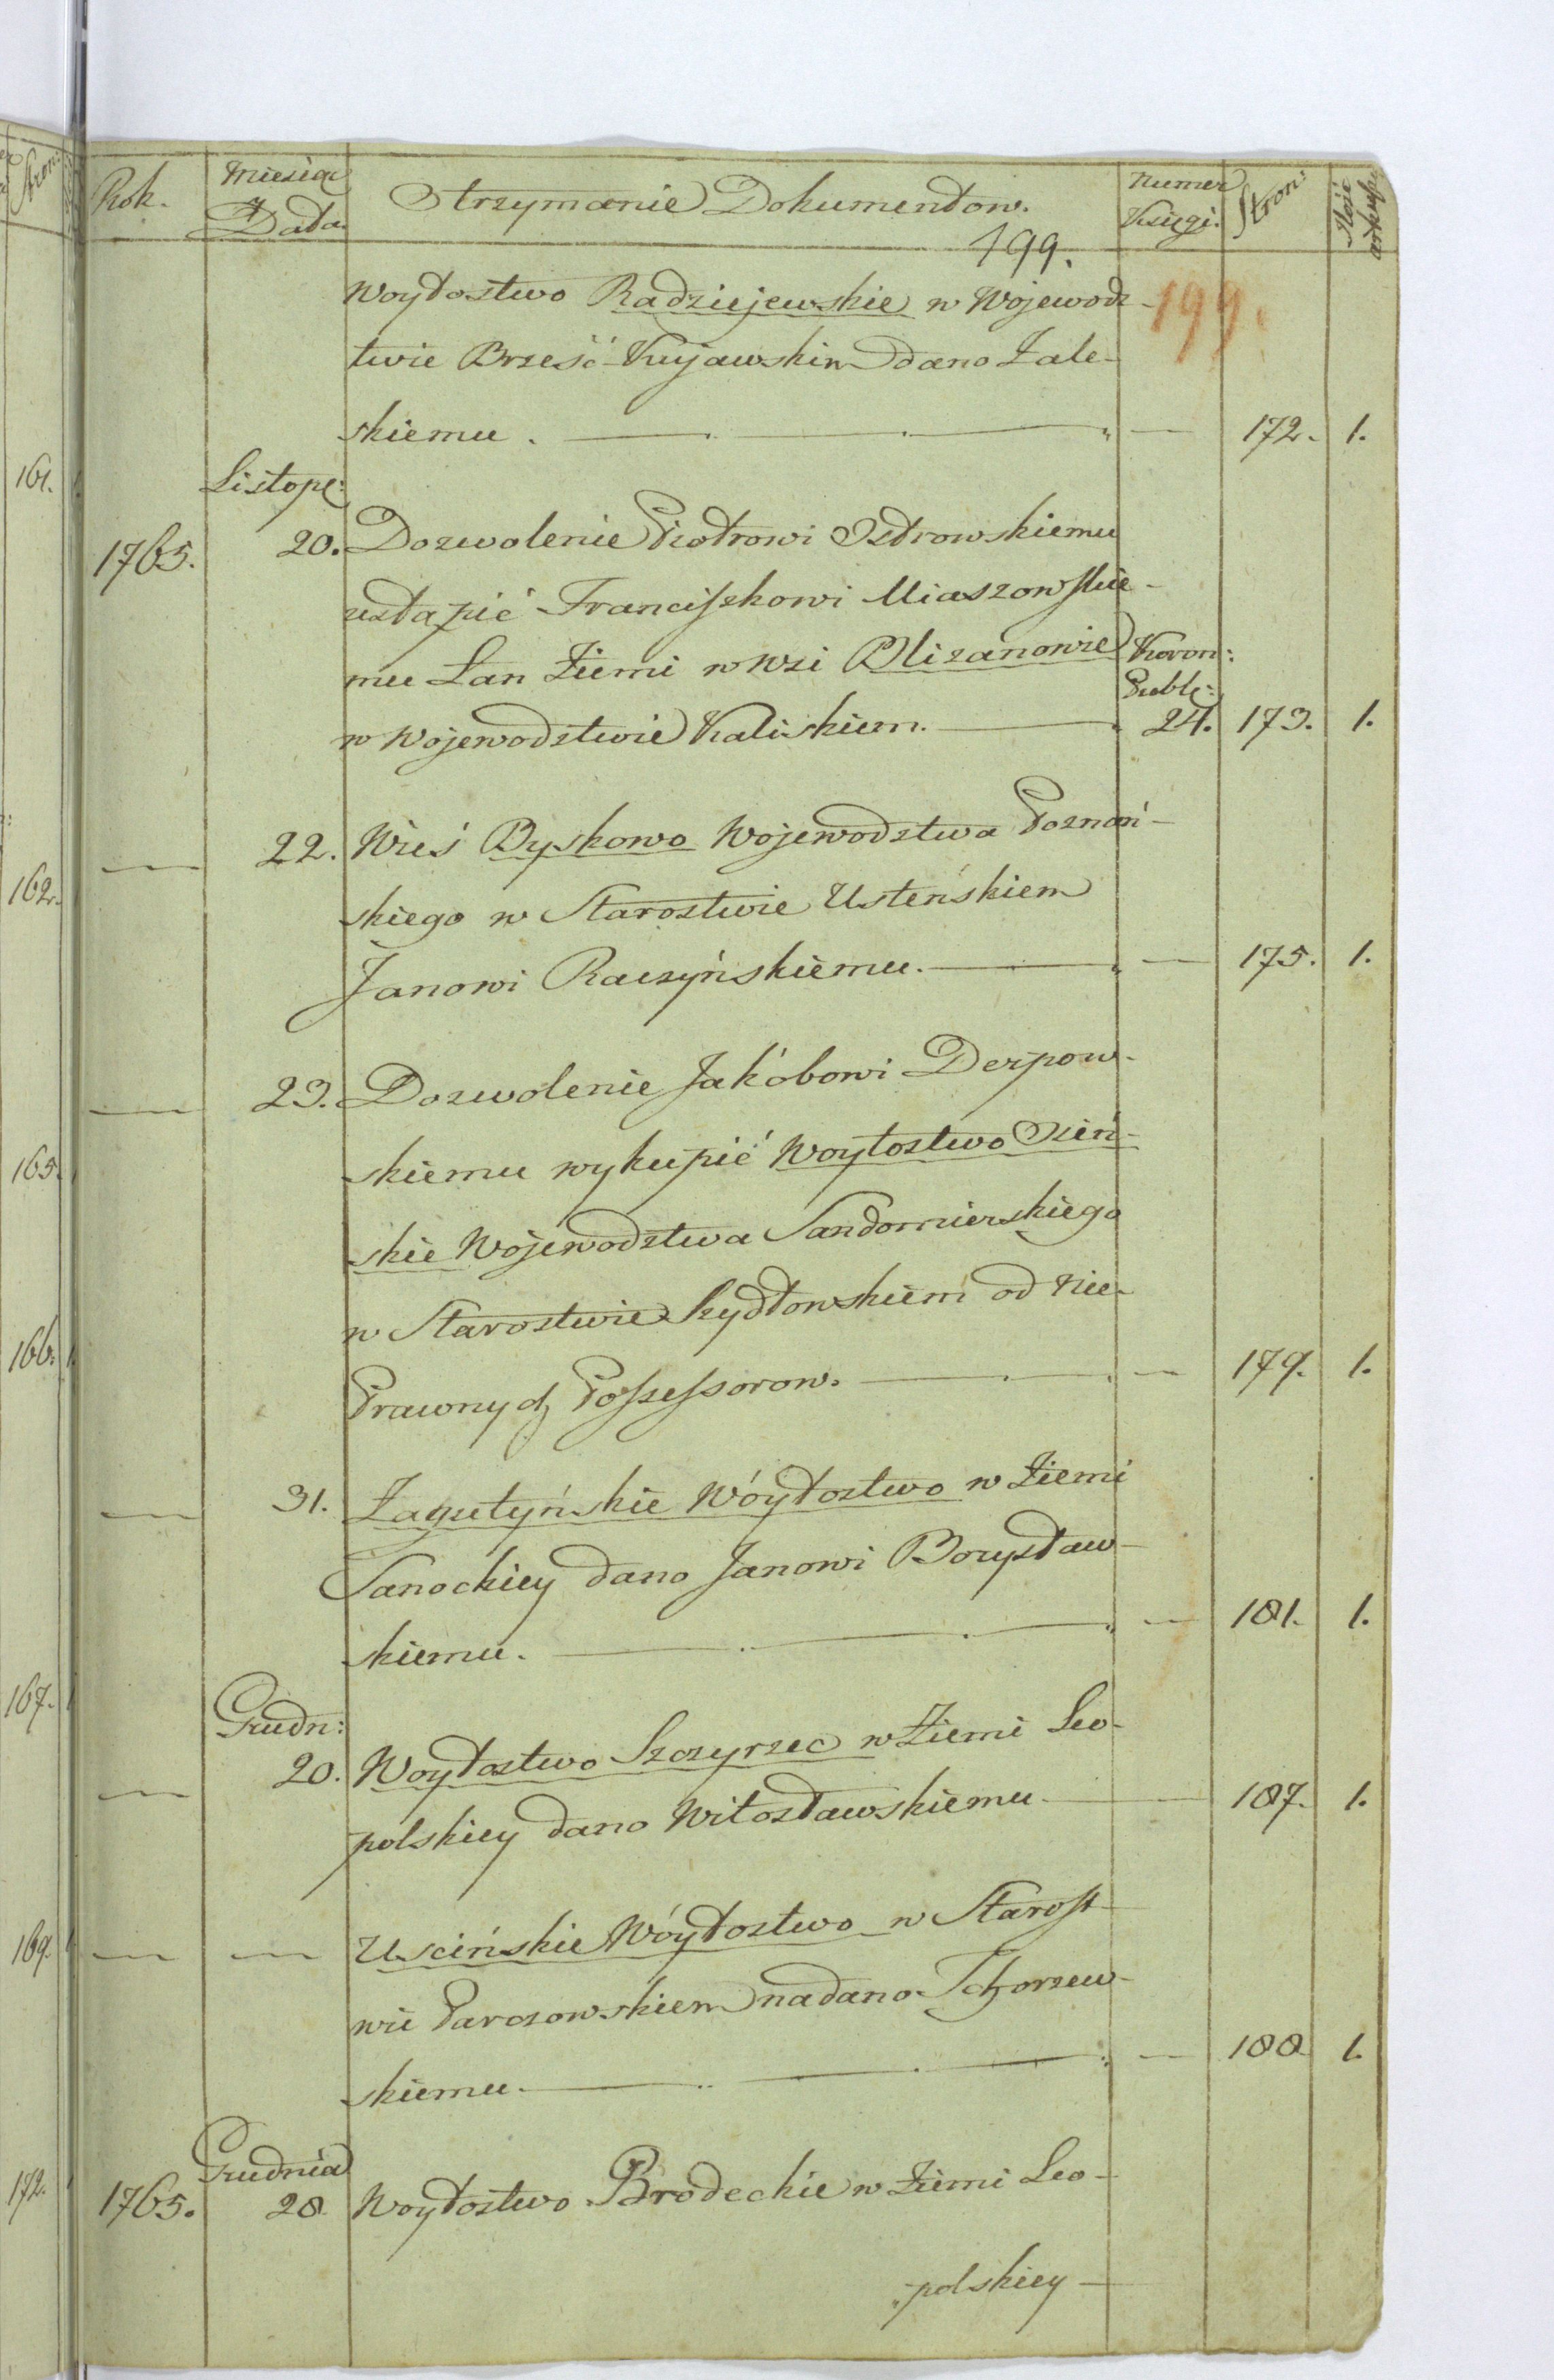 Rok. Miesiąc Data. Otrzymanie Dokumentow. Numer Księgi. Stron: Ilość
199.
199.
Woytostwo Radziejewskie w Wojewodz-
twie Brześć-Kujawskim dano Zale-
skiemu. 172. 1.
Listop:
1765. 20. Dozwolenie Piotrowi Ostrowskiemu
ustąpić Franciszkowi Miaszowskie-
mu Łan Ziemi w wsi Blizanowie Koron:
Publ:
w Wojewodztwie Kaliskiem. 24. 173. 1.
— 22. Wieś Byskowo Wojewodztwa Poznań-
skiego w Starostwie Usteńskiem
Janowi Raczyńskiemu. — 175. 1.
— 23. Dozwolenie Jakóbowi Derpow-
skiemu wykupić Woytostwo Osień-
skie Wojewodztwa Sandomierskiego
w Starostwie Szydłowskiem od nie-
Prawnych Possessorow. — 179. 1.
— 31. Zagutyńskie Wóytostwo w Ziemi
Sanockiey dano Janowi Borysław-
skiemu. — 181. 1.
Grudn:
— 20. Woytostwo Szczyrzec w Ziemi Leo-
polskiey dano Witosławskiemu. — 187. 1.
— — Uscińskie Wóytostwo w Starost-
wie Parczowskiem nadano Tchorzew-
skiemu. — 188 1.
Grudnia
1765. 28 Woytostwo Brodeckie w Ziemi Leo-
polskiey —
161.
162.
165.
166.
167.
169.
172.